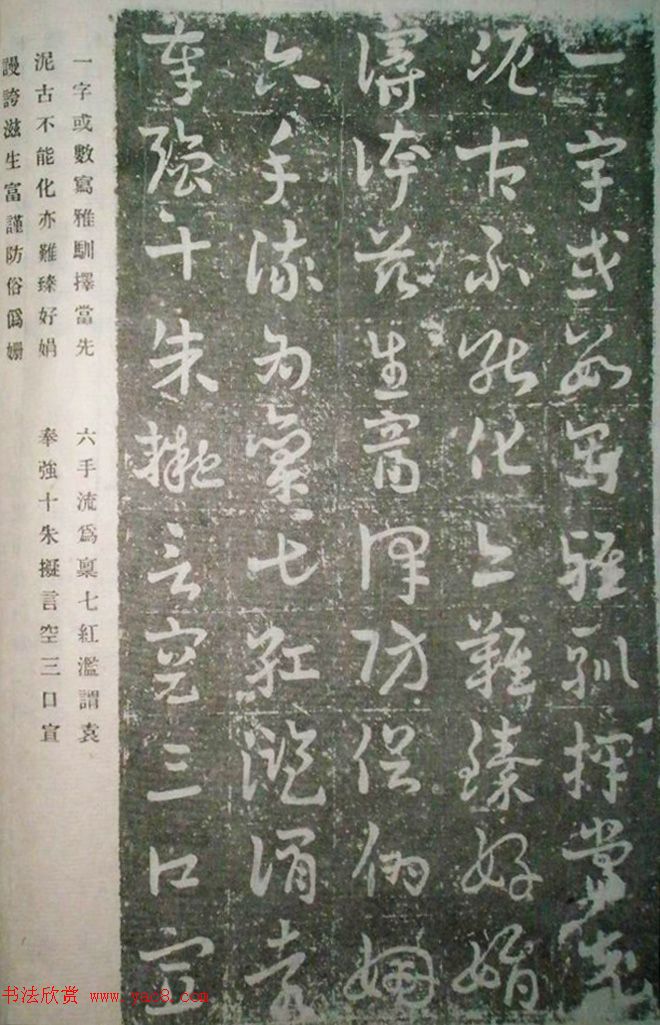 一字或數寫雅馴擇當先
泥古不能化亦難臻好娟
謾誇滋生富謹防俗僞姍
六手流爲稟七紅濫謂袁
奉強十朱擬言空三口宣
一字或數寫雅馴擇當先
泥古不能化亦難臻好娟
謾誇滋生富謹防俗僞姍
六手流爲稟七紅濫謂袁
奉強十朱擬言空三口宣
书法欣赏 www.yac8.com